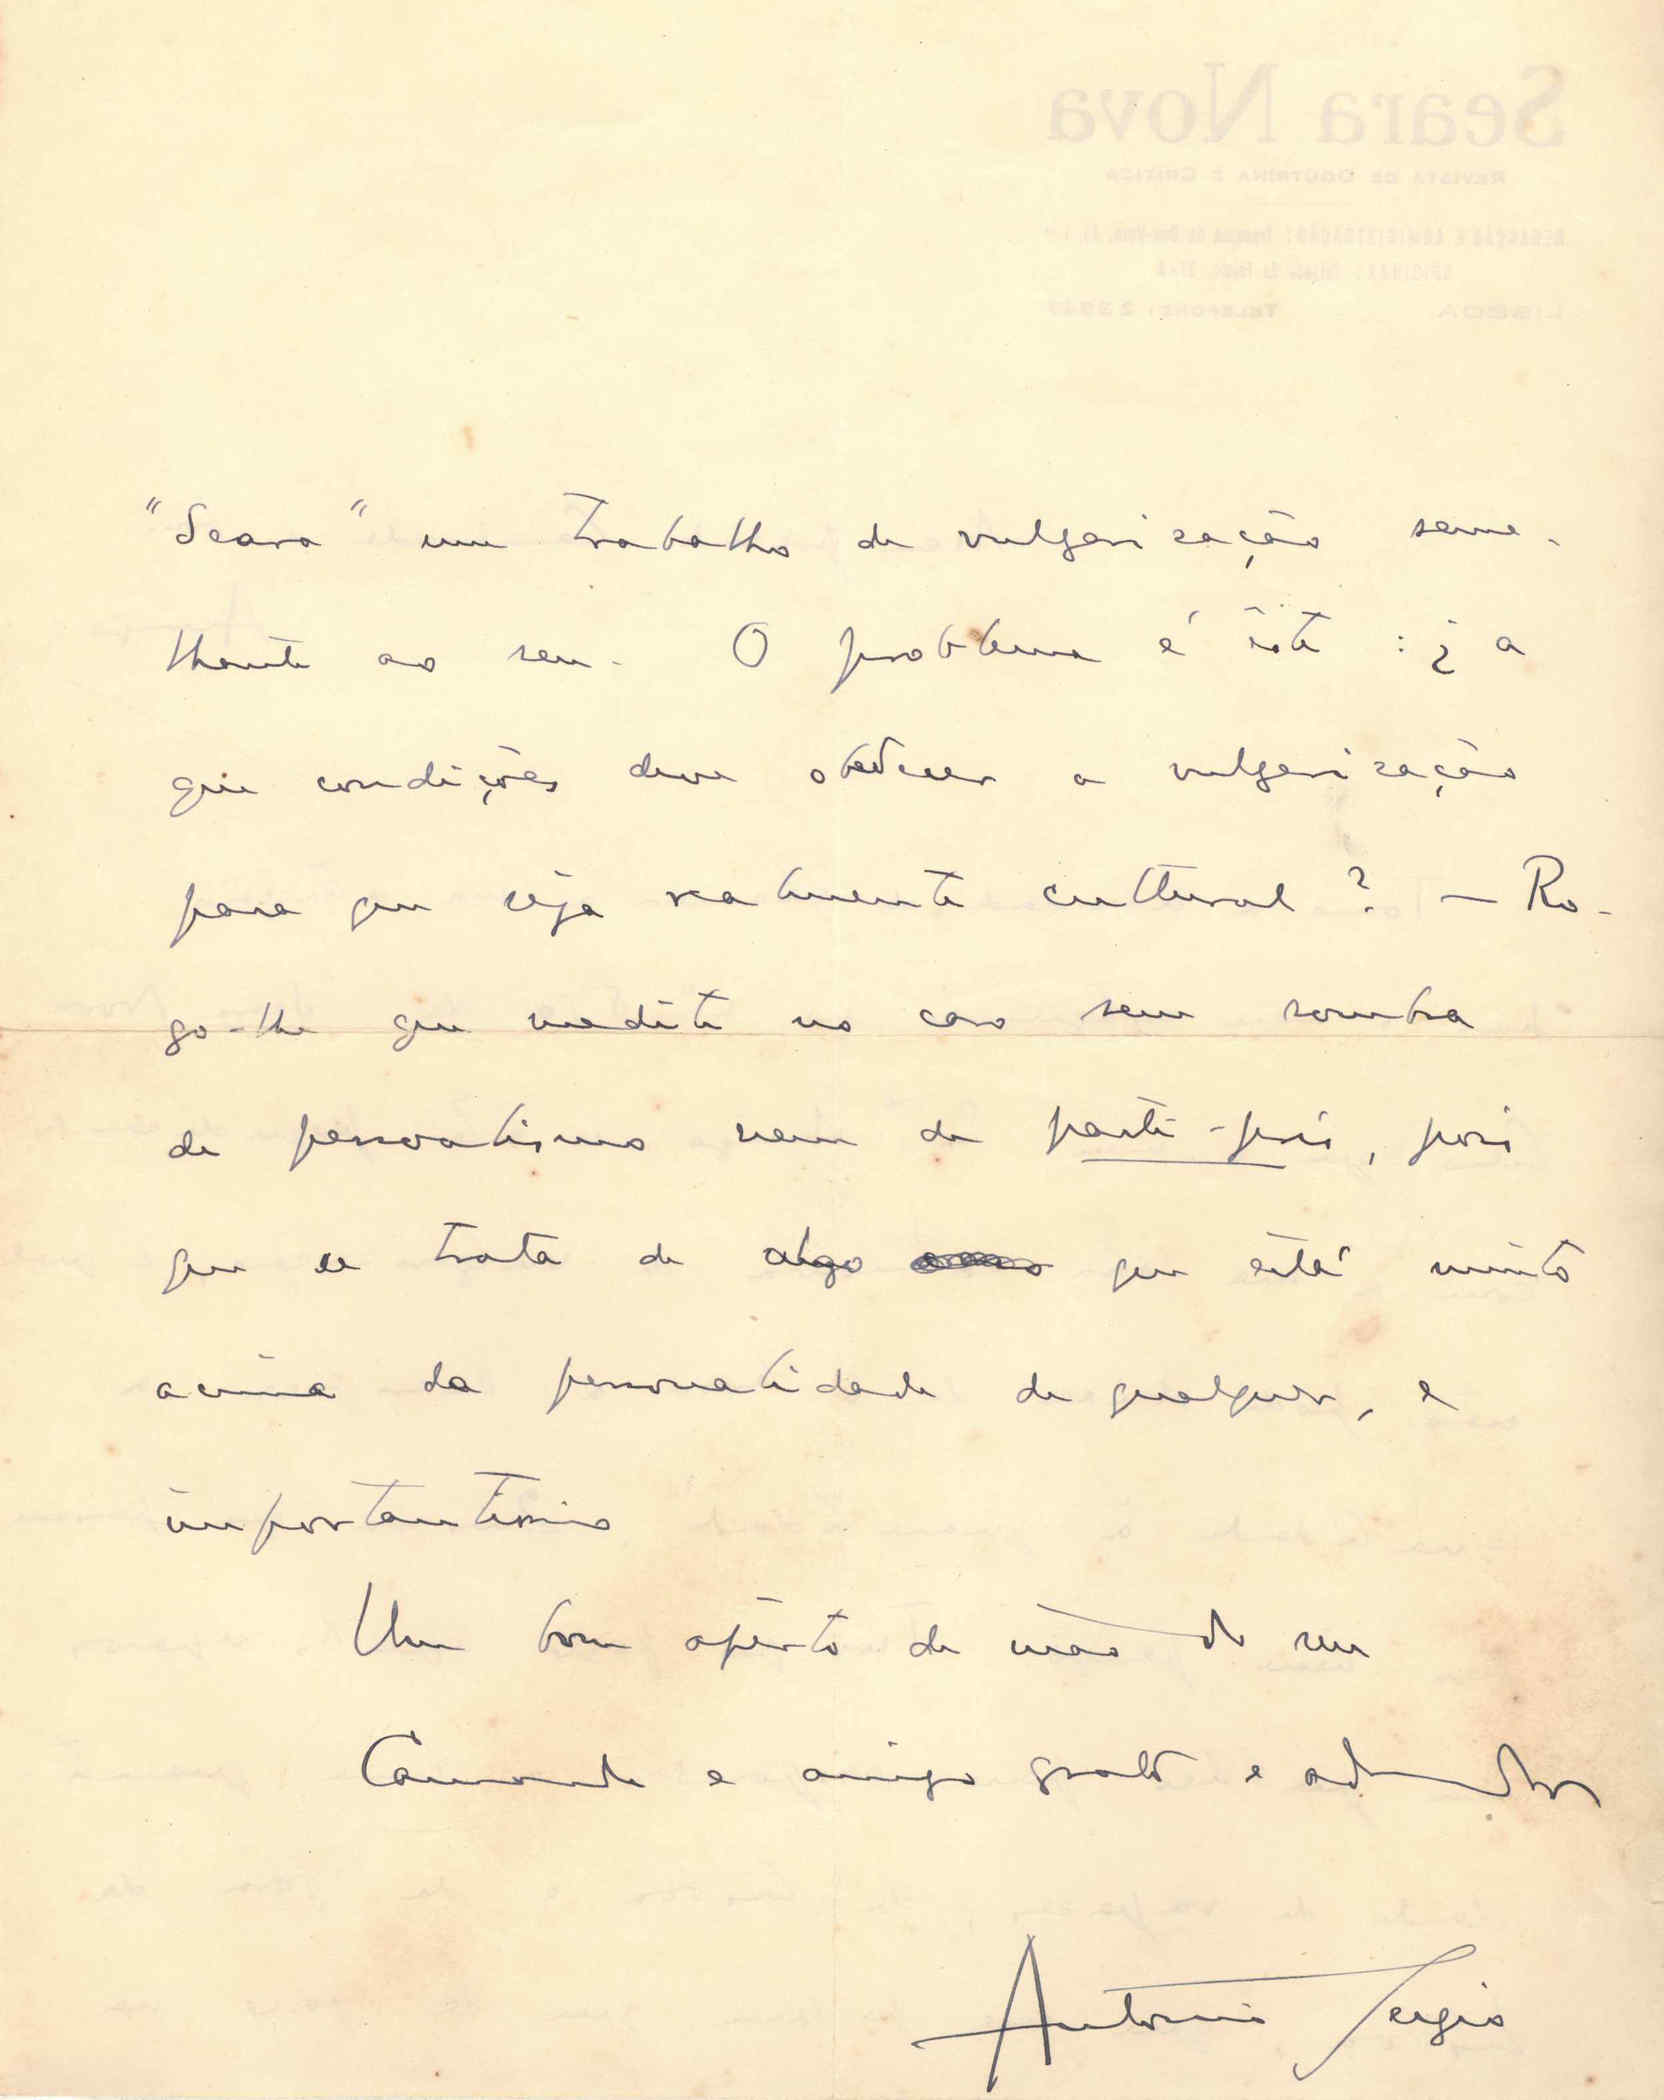 "Seara" um trabalho de vulgarização seme-
lhante ao seu. O problema é êste: ¿ a
que condições deve obedecer a vulgarização
para que seja realmente cultural? — Ro-
go-lhe que medite no caso sem sombra
de personalismo nem de parti-pris, pois
que se trata de algo que está muito
acima da personalidade de qualquer, e
importantíssimo
Um bom apêrto de mão do seu
Camarada e amigo grato e admirador
António Sérgio
Seara Nova
REVISTA DE DOUTRINA E CRÍTICA
LISBOA TELEFONE: